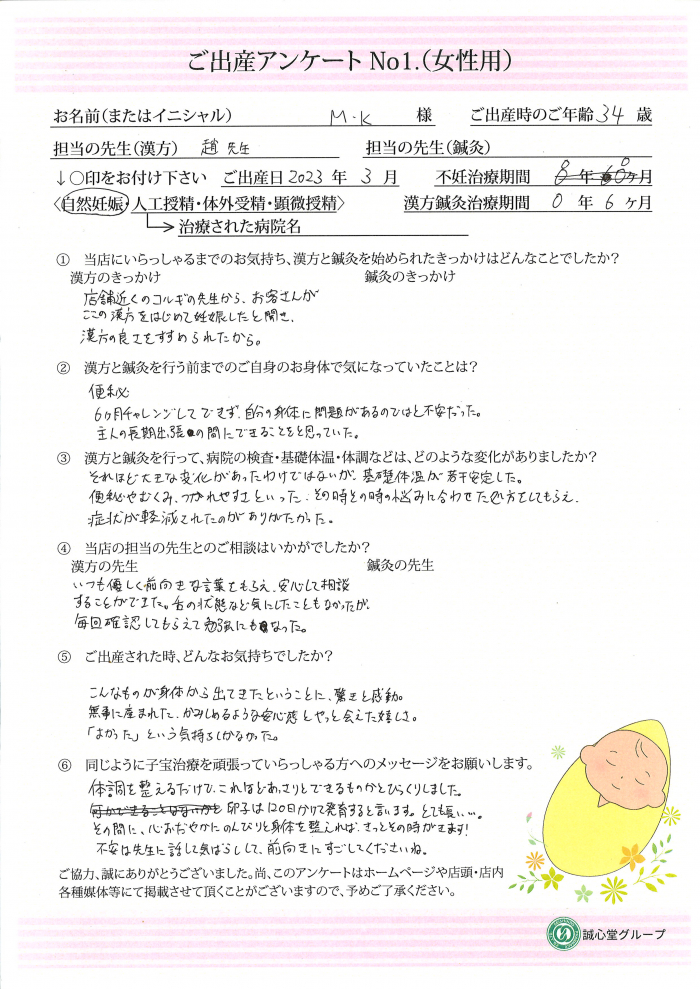 ご出産アンケート No1.(女性用)
お名前(またはイニシャル) M.K 様 ご出産時のご年齢 34 歳
担当の先生(漢方) 趙先生 担当の先生(鍼灸)
↓○印をお付け下さい ご出産日 2023 年 3 月 不妊治療期間 0 年 0 ヶ月
〈自然妊娠・人工授精・体外受精・顕微授精〉 漢方鍼灸治療期間 0 年 6 ヶ月
→治療された病院名
① 当店にいらっしゃるまでのお気持ち、漢方と鍼灸を始められたきっかけはどんなことでしたか?
漢方のきっかけ 鍼灸のきっかけ
店舗近くのコルギの先生から、お客さんが
ここの漢方をはじめて妊娠したと聞き、
漢方の良さをすすめられたから。
② 漢方と鍼灸を行う前までのご自身のお身体で気になっていたことは?
便秘
6ヶ月チャレンジしてできず、自分の身体に問題があるのではと不安だった。
主人の長期出張の間にできることをと思っていた。
③ 漢方と鍼灸を行って、病院の検査・基礎体温・体調などは、どのような変化がありましたか?
それほど大きな変化があったわけではないが、基礎体温が若干安定した。
便秘やむくみ、つかれやすさといった、その時その時の悩みに合わせた処方をしてもらえ、
症状が軽減されたのがありがたかった。
④ 当店の担当の先生とのご相談はいかがでしたか?
漢方の先生 鍼灸の先生
いつも優しく前向きな言葉をもらえ、安心して相談
することができた。舌の状態など気にしたこともなかったが、
毎回確認してもらえて勉強にもなった。
⑤ ご出産された時、どんなお気持ちでしたか?
こんなものが身体から出てきたということに、驚きと感動。
無事に産まれた、かみしめるような安心感とやっと会えた嬉しさ。
「よかった」という気持ちしかなかった。
⑥ 同じように子宝治療を頑張っていらっしゃる方へのメッセージをお願いします。
体調を整えるだけで、これほどあっさりとできるものかとびっくりしました。
卵子は120日かけて発育すると言います。とても長い…。
その間に、心おだやかにのんびりと身体を整えれば、きっとその時がきます!
不安は先生に話して気ばらしして、前向きにすごしてくださいね。
ご協力、誠にありがとうございました。尚、このアンケートはホームページや店頭・店内
各種媒体等にて掲載させて頂くことがございますので、予めご了承ください。
誠心堂グループ